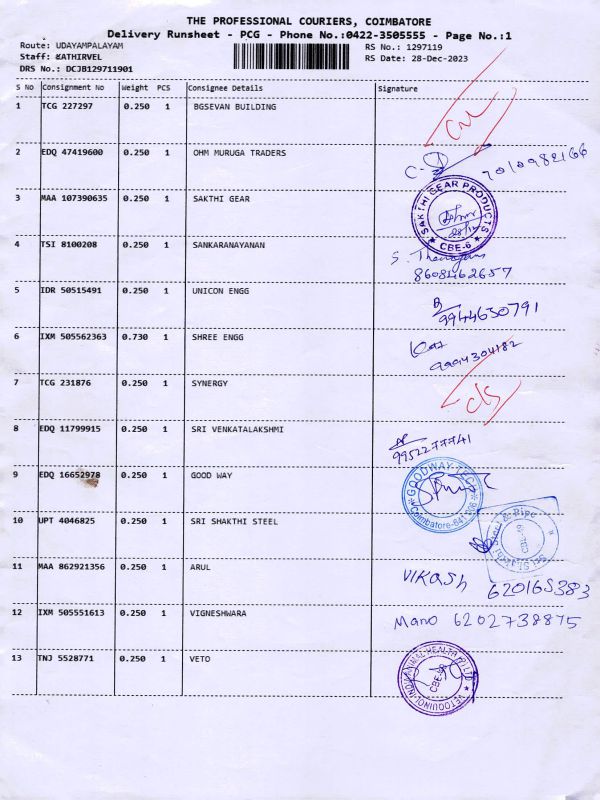 THE PROFESSIONAL COURIERS, COIMBATORE
Delivery Runsheet - PCG - Phone No.:0422-3505555 - Page No.:1
Route: UDAYAMPALAYAM RS No.: 1297119
Staff: KATHIRVEL RS Date: 28-Dec-2023
DRS No.: DCJB129711901
S No Consignment No Weight PCS Consignee Details Signature
1 TCG 227297 0.250 1 BGSEVAN BUILDING
2 EDQ 47419600 0.250 1 OHM MURUGA TRADERS 7010982166
3 MAA 107390635 0.250 1 SAKTHI GEAR
SAKTHI GEAR PRODUCTS
CBE-6
4 TSI 8100208 0.250 1 SANKARANAYANAN
8608462657
5 IDR 50515491 0.250 1 UNICON ENGG
9944630791
6 IXM 505562363 0.730 1 SHREE ENGG
9994304182
7 TCG 231876 0.250 1 SYNERGY
8 EDQ 11799915 0.250 1 SRI VENKATALAKSHMI
9952277741
9 EDQ 16652978 0.250 1 GOOD WAY
GOODWAY TEC
Coimbatore-641 006
10 UPT 4046825 0.250 1 SRI SHAKTHI STEEL
11 MAA 862921356 0.250 1 ARUL
Vikash 620165383
12 IXM 505551613 0.250 1 VIGNESHWARA Mano 6202738875
13 TNJ 5528771 0.250 1 VETO
CBE-6